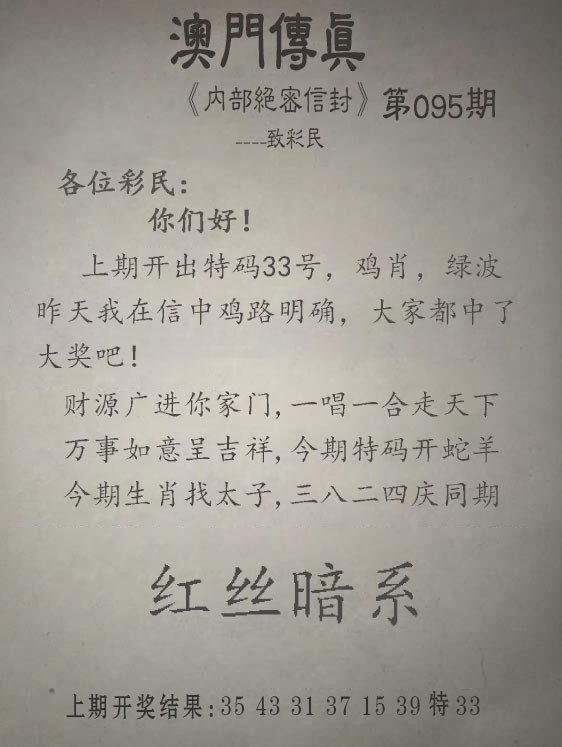 澳門傳真
《内部絕密信封》第095期
----致彩民
各位彩民：
你们好！
上期开出特码33号，鸡肖，绿波
昨天我在信中鸡路明确，大家都中了
大奖吧！
财源广进你家门,一唱一合走天下
万事如意呈吉祥,今期特码开蛇羊
今期生肖找太子,三八二四庆同期
红丝暗系
上期开奖结果:35 43 31 37 15 39 特 33